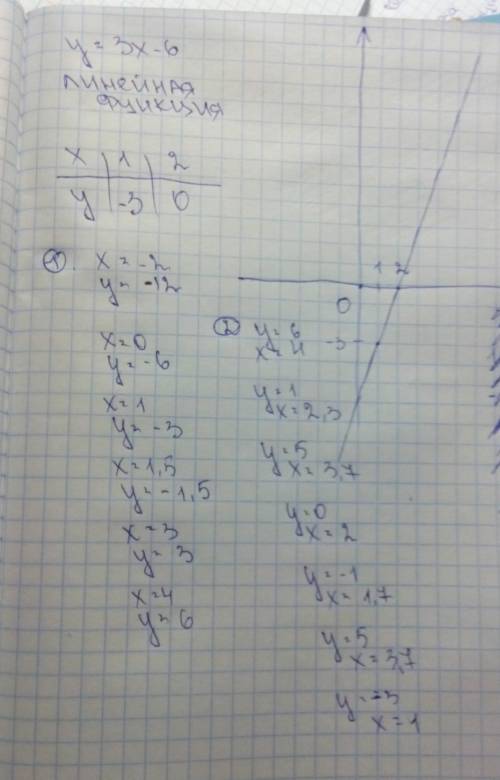 y = 3x - 6
ЛИНЕЙНАЯ
ФУНКЦИЯ
x | 1 | 2
y | -3 | 0
①. x = -2
y = -12
x=0
y= -6
x=1
y= -3
x=1,5
y= -1,5
x=3
y= 3
x=4
y= 6
1 2
0
-3
② y= 6
x= 4
y= 1
x= 2,3
y= 5
x= 3,7
y=0
x= 2
y= -1
x= 1,7
y= 5
x= 3,7
y= -3
x= 1